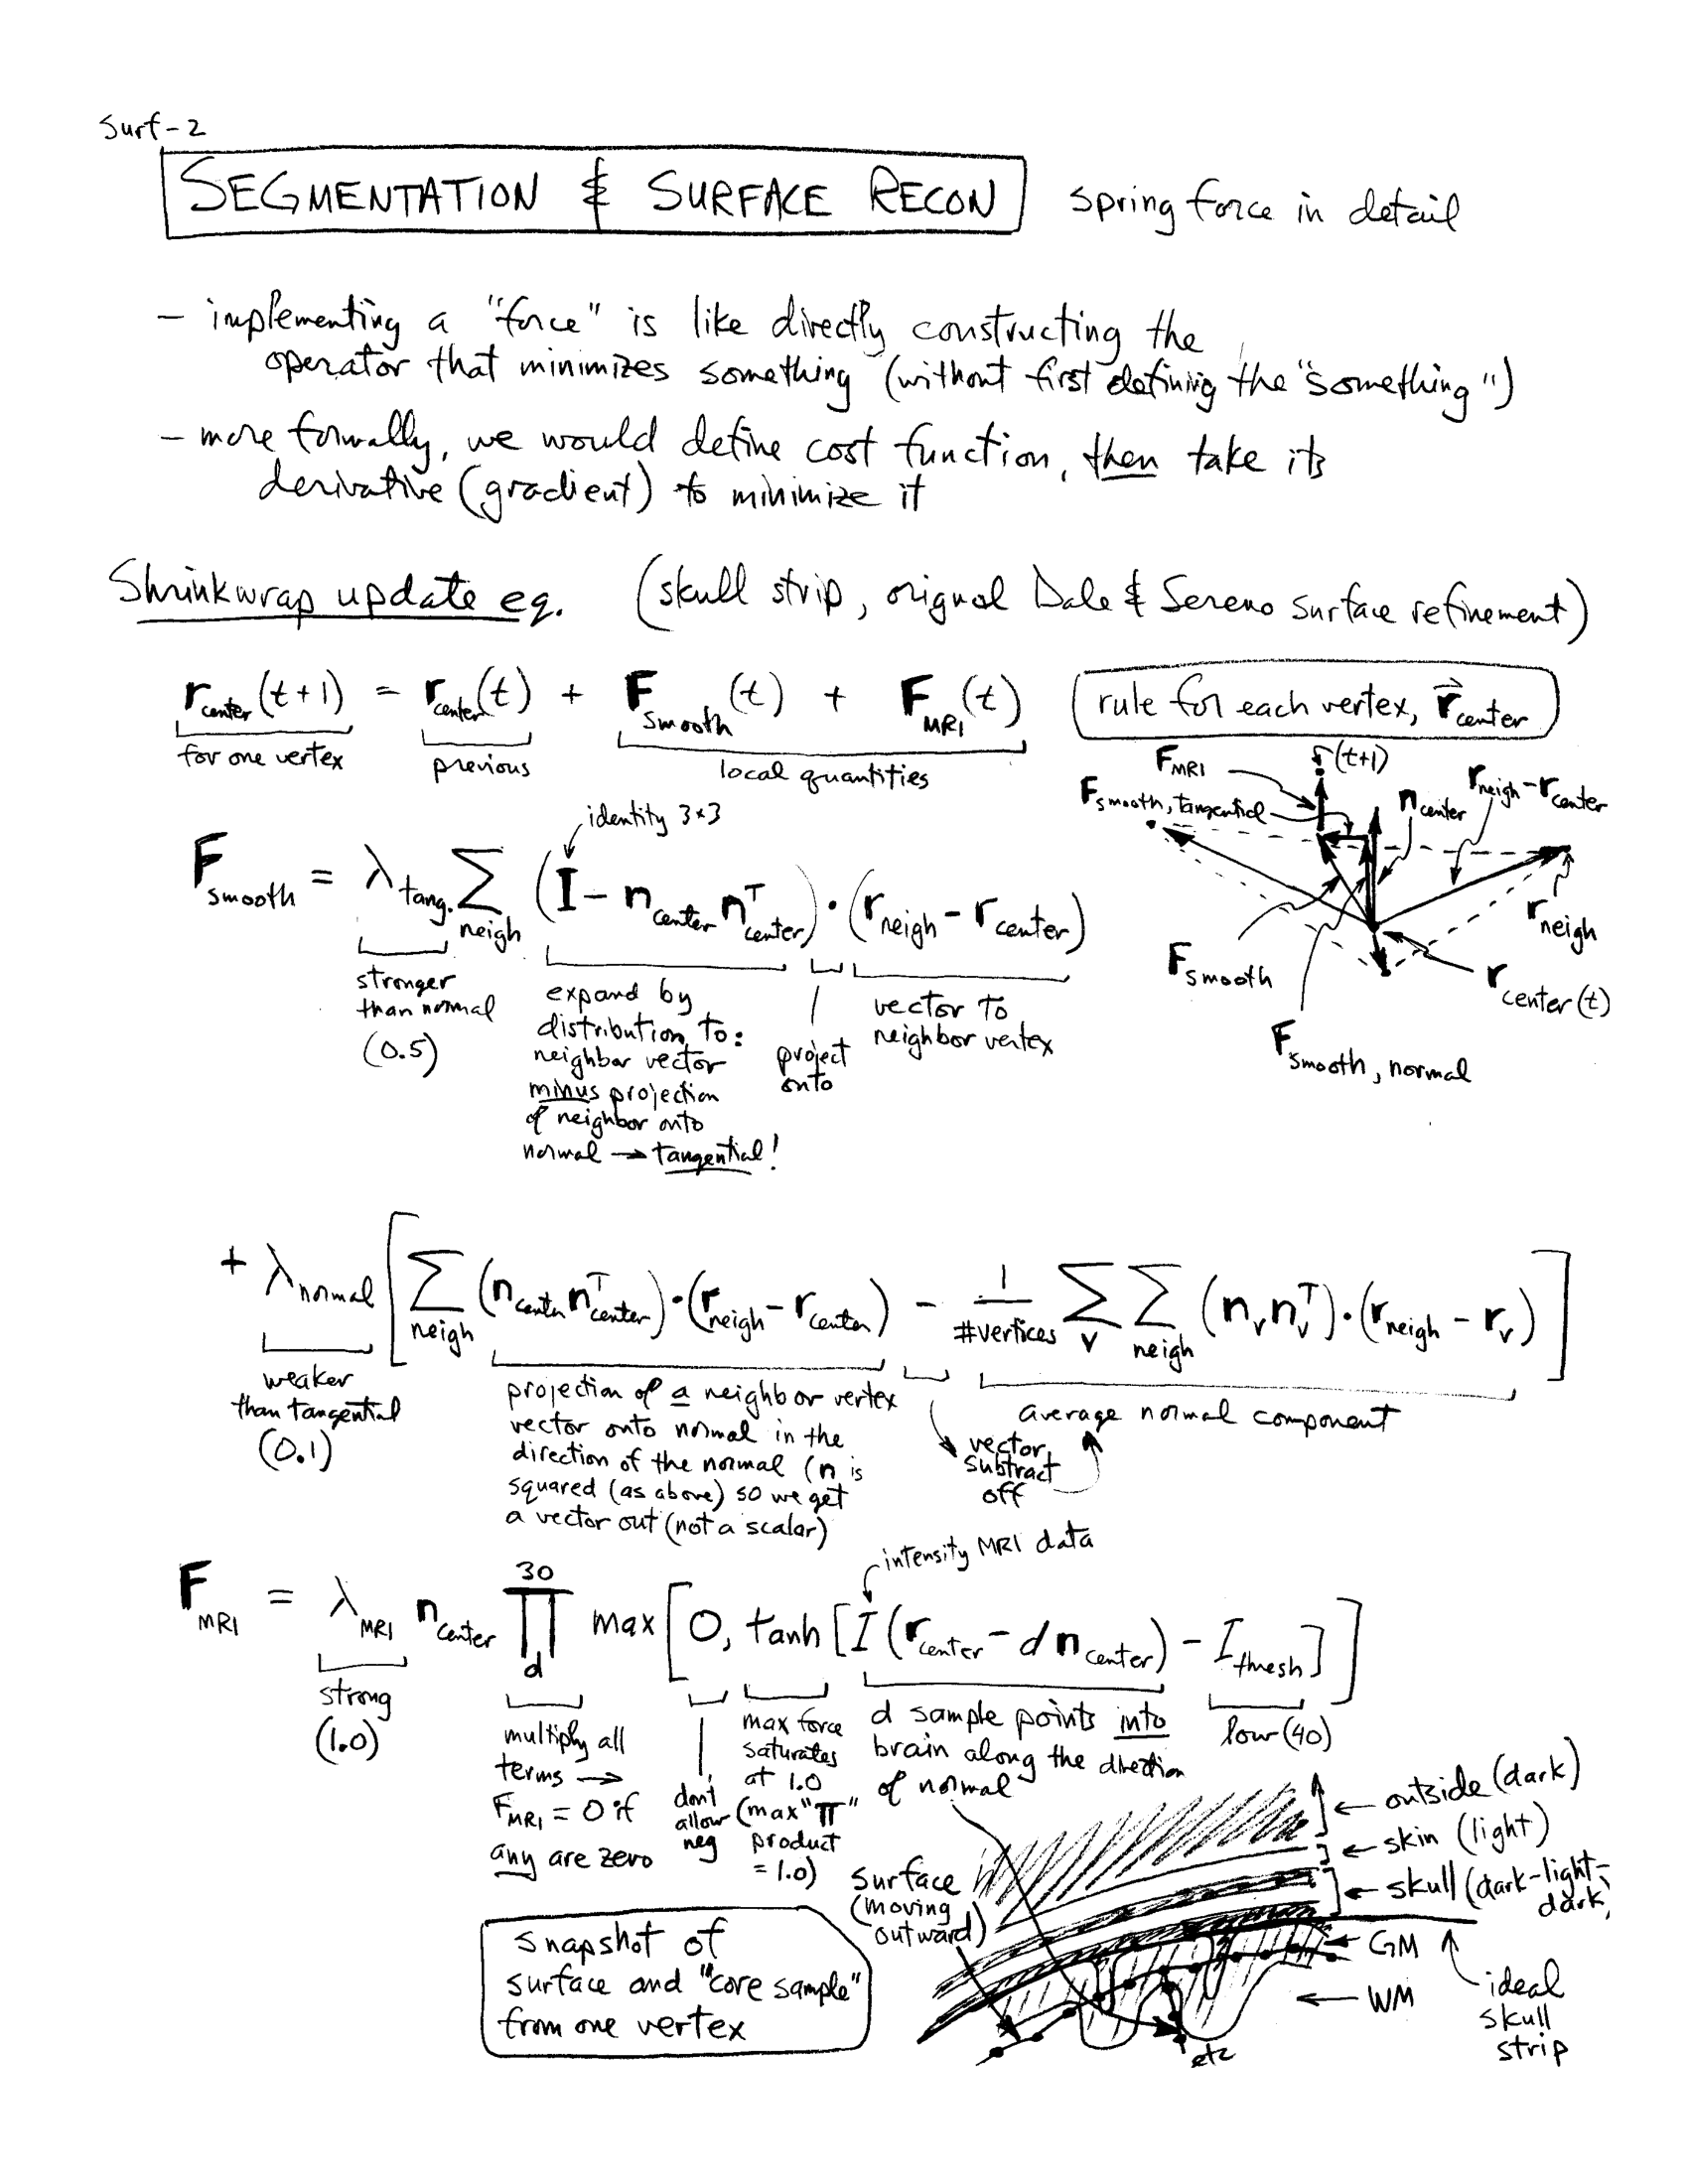 Surf-2
SEGMENTATION & SURFACE RECON
spring force in detail
- implementing a "force" is like directly constructing the
operator that minimizes something (without first defining the "something")
- more formally, we would define cost function, then take its
derivative (gradient) to minimize it
Shrinkwrap update eq. (skull strip, orignal Dale & Sereno surface refinement)
r_center(t+1) = r_center(t) + F_smooth(t) + F_MRI(t)
for one vertex
previous
local quantities
rule for each vertex, r⃗_center
F_MRI
r(t+1)
F_smooth, tangential
n_center
r_neigh - r_center
r_neigh
F_smooth
r_center(t)
F_smooth, normal
identity 3×3
F_smooth = λ_tang. Σ_neigh (I - n_center n_center^T) · (r_neigh - r_center)
stronger
than normal
(0.5)
expand by
distribution to:
neighbor vector
minus projection
of neighbor onto
normal → tangential!
project
onto
vector to
neighbor vertex
+ λ_normal [ Σ_neigh (n_center n_center^T) · (r_neigh - r_center) - 1/#vertices Σ_v Σ_neigh (n_v n_v^T) · (r_neigh - r_v) ]
weaker
than tangential
(0.1)
projection of a neighbor vertex
vector onto normal in the
direction of the normal (n is
squared (as above) so we get
a vector out (not a scalar)
vector
subtract
off
average normal component
intensity MRI data
F_MRI = λ_MRI n_center ∏_d^30 max [ 0, tanh [ I (r_center - d n_center) - I_thresh ] ]
strong
(1.0)
multiply all
terms →
F_MRI = 0 if
any are zero
don't
allow
neg
max force
saturates
at 1.0
(max "π"
product
= 1.0)
d sample points into
brain along the direction
of normal
low (40)
outside (dark)
skin (light)
skull (dark-light-
dark)
surface
(moving
outward)
GM
WM
ideal
skull
strip
etc
snapshot of
surface and "core sample"
from one vertex